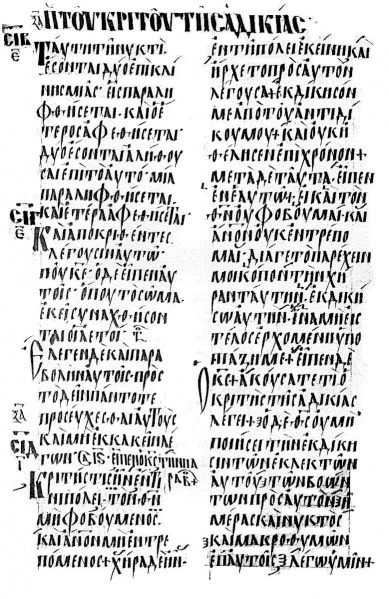 ΞΑ Π ΤΟΥΚΡΙΤΟΥΤΗΣΑΔΙΚΙΑΣ
ΣΙΒ ΤΑΥΤΗΤΗΝΥΚΤΙ
Ε ΕΣΟΝΤΑΙΔΥΟΕΠΙΚΛΙ
ΝΗΣΜΙΑΣ· ΕΙΣΠΑΡΑΛΗ
ΦΘΗΣΕΤΑΙ· ΚΑΙΟΕ
ΤΕΡΟΣΑΦΕΘΗΣΕΤΑΙ
ΔΥΟΕΣΟΝΤΑΙΑΛΗΘΟΥ
ΣΑΙΕΠΙΤΟΑΥΤΟ· ΜΙΑ
ΠΑΡΑΛΗΦΘΗΣΕΤΑΙ·
ΚΑΙΕΤΕΡΑΑΦΕΘΗΣΕΤΑΙ·
ΚΑΙΑΠΟΚΡΙΘΕΝΤΕΣ
ΛΕΓΟΥΣΙΝΑΥΤΩ·
ΠΟΥΚΕ· ΟΔΕΕΙΠΕΝΑΥ
ΤΟΙΣ· ΟΠΟΥΤΟΣΩΜΑ
ΕΚΕΙΣΥΝΑΧΘΗΣΟΝ
ΤΑΙΟΙΑΕΤΟΙ·
ΕΛΕΓΕΝΔΕΚΑΙΠΑΡΑ
ΒΟΛΗΝΑΥΤΟΙΣ· ΠΡΟΣ
ΤΟΔΕΙΝΠΑΝΤΟΤΕ
ΞΑ ΠΡΟΣΕΥΧΕΣΘΑΙΑΥΤΟΥΣ
ΣΙΔ ΚΑΙΜΗΕΚΚΑΚΕΙΝΛΕ
Ι ΓΩΝ· ΕΙΠΕΝΟΚΣΤΗΝΠΑΡΑΒ
ΚΡΙΤΗΣΤΙΣΗΝΕΝΤΙ
ΝΙΠΟΛΕΙ· ΤΟΝΘΝ
ΜΗΦΟΒΟΥΜΕΝΟΣ
ΚΑΙΑΝΟΝΜΗΕΝΤΡΕ
ΠΟΜΕΝΟΣ+ΧΗΡΑΔΕΗΝ·
ΕΝΤΗΠΟΛΕΙΕΚΕΙΝΗΚΑΙ
ΗΡΧΕΤΟΠΡΟΣΑΥΤΟΝ
ΛΕΓΟΥΣΑ+ΕΚΔΙΚΗΣΟΝ
ΜΕΑΠΟΤΟΥΑΝΤΙΔΙ
ΚΟΥΜΟΥ+ΚΑΙΟΥΚΗ
ΘΕΛΗΣΕΝΕΠΙΧΡΟΝΟΝ+
ΜΕΤΑΔΕΤΑΥΤΑ· ΕΙΠΕΝ
ΕΝΕΑΥΤΩ+ΕΙΚΑΙΤΟΝ
ΘΝΟΥΦΟΒΟΥΜΑΙ+ΚΑΙ
ΑΝΟΝΟΥΚΕΝΤΡΕΠΟ
ΜΑΙ· ΔΙΑΓΕΤΟΠΑΡΕΧΕΙΝ
ΜΟΙΚΟΠΟΝΤΗΝΧΗ
ΡΑΝΤΑΥΤΗΝ· ΕΚΔΙΚΗ
ΣΩΑΥΤΗΝ· ΙΝΑΜΗΕΙΣ
ΤΕΛΟΣΕΡΧΟΜΕΝΗΥΠΟ
ΠΙΑΖΗΜΕ+ΕΙΠΕΝΔΕ
ΟΚΣ+ΑΚΟΥΣΑΤΕΤΙΟ
ΚΡΙΤΗΣΤΗΣΑΔΙΚΙΑΣ
ΛΕΓΕΙ+ΟΔΕΘΣΟΥΜΗ
ΠΟΙΗΣΕΙΤΗΝΕΚΔΙΚΗ
ΣΙΝΤΩΝΕΚΛΕΚΤΩΝ
ΑΥΤΟΥΤΩΝΒΟΩΝ
ΤΩΝΠΡΟΣΑΥΤΟΝΗ
ΜΕΡΑΣΚΑΙΝΥΚΤΟΣ
ΚΑΙΜΑΚΡΟΘΥΜΩΝ
ΕΠΑΥΤΟΙΣΛΕΓΩΥΜΙΝ+